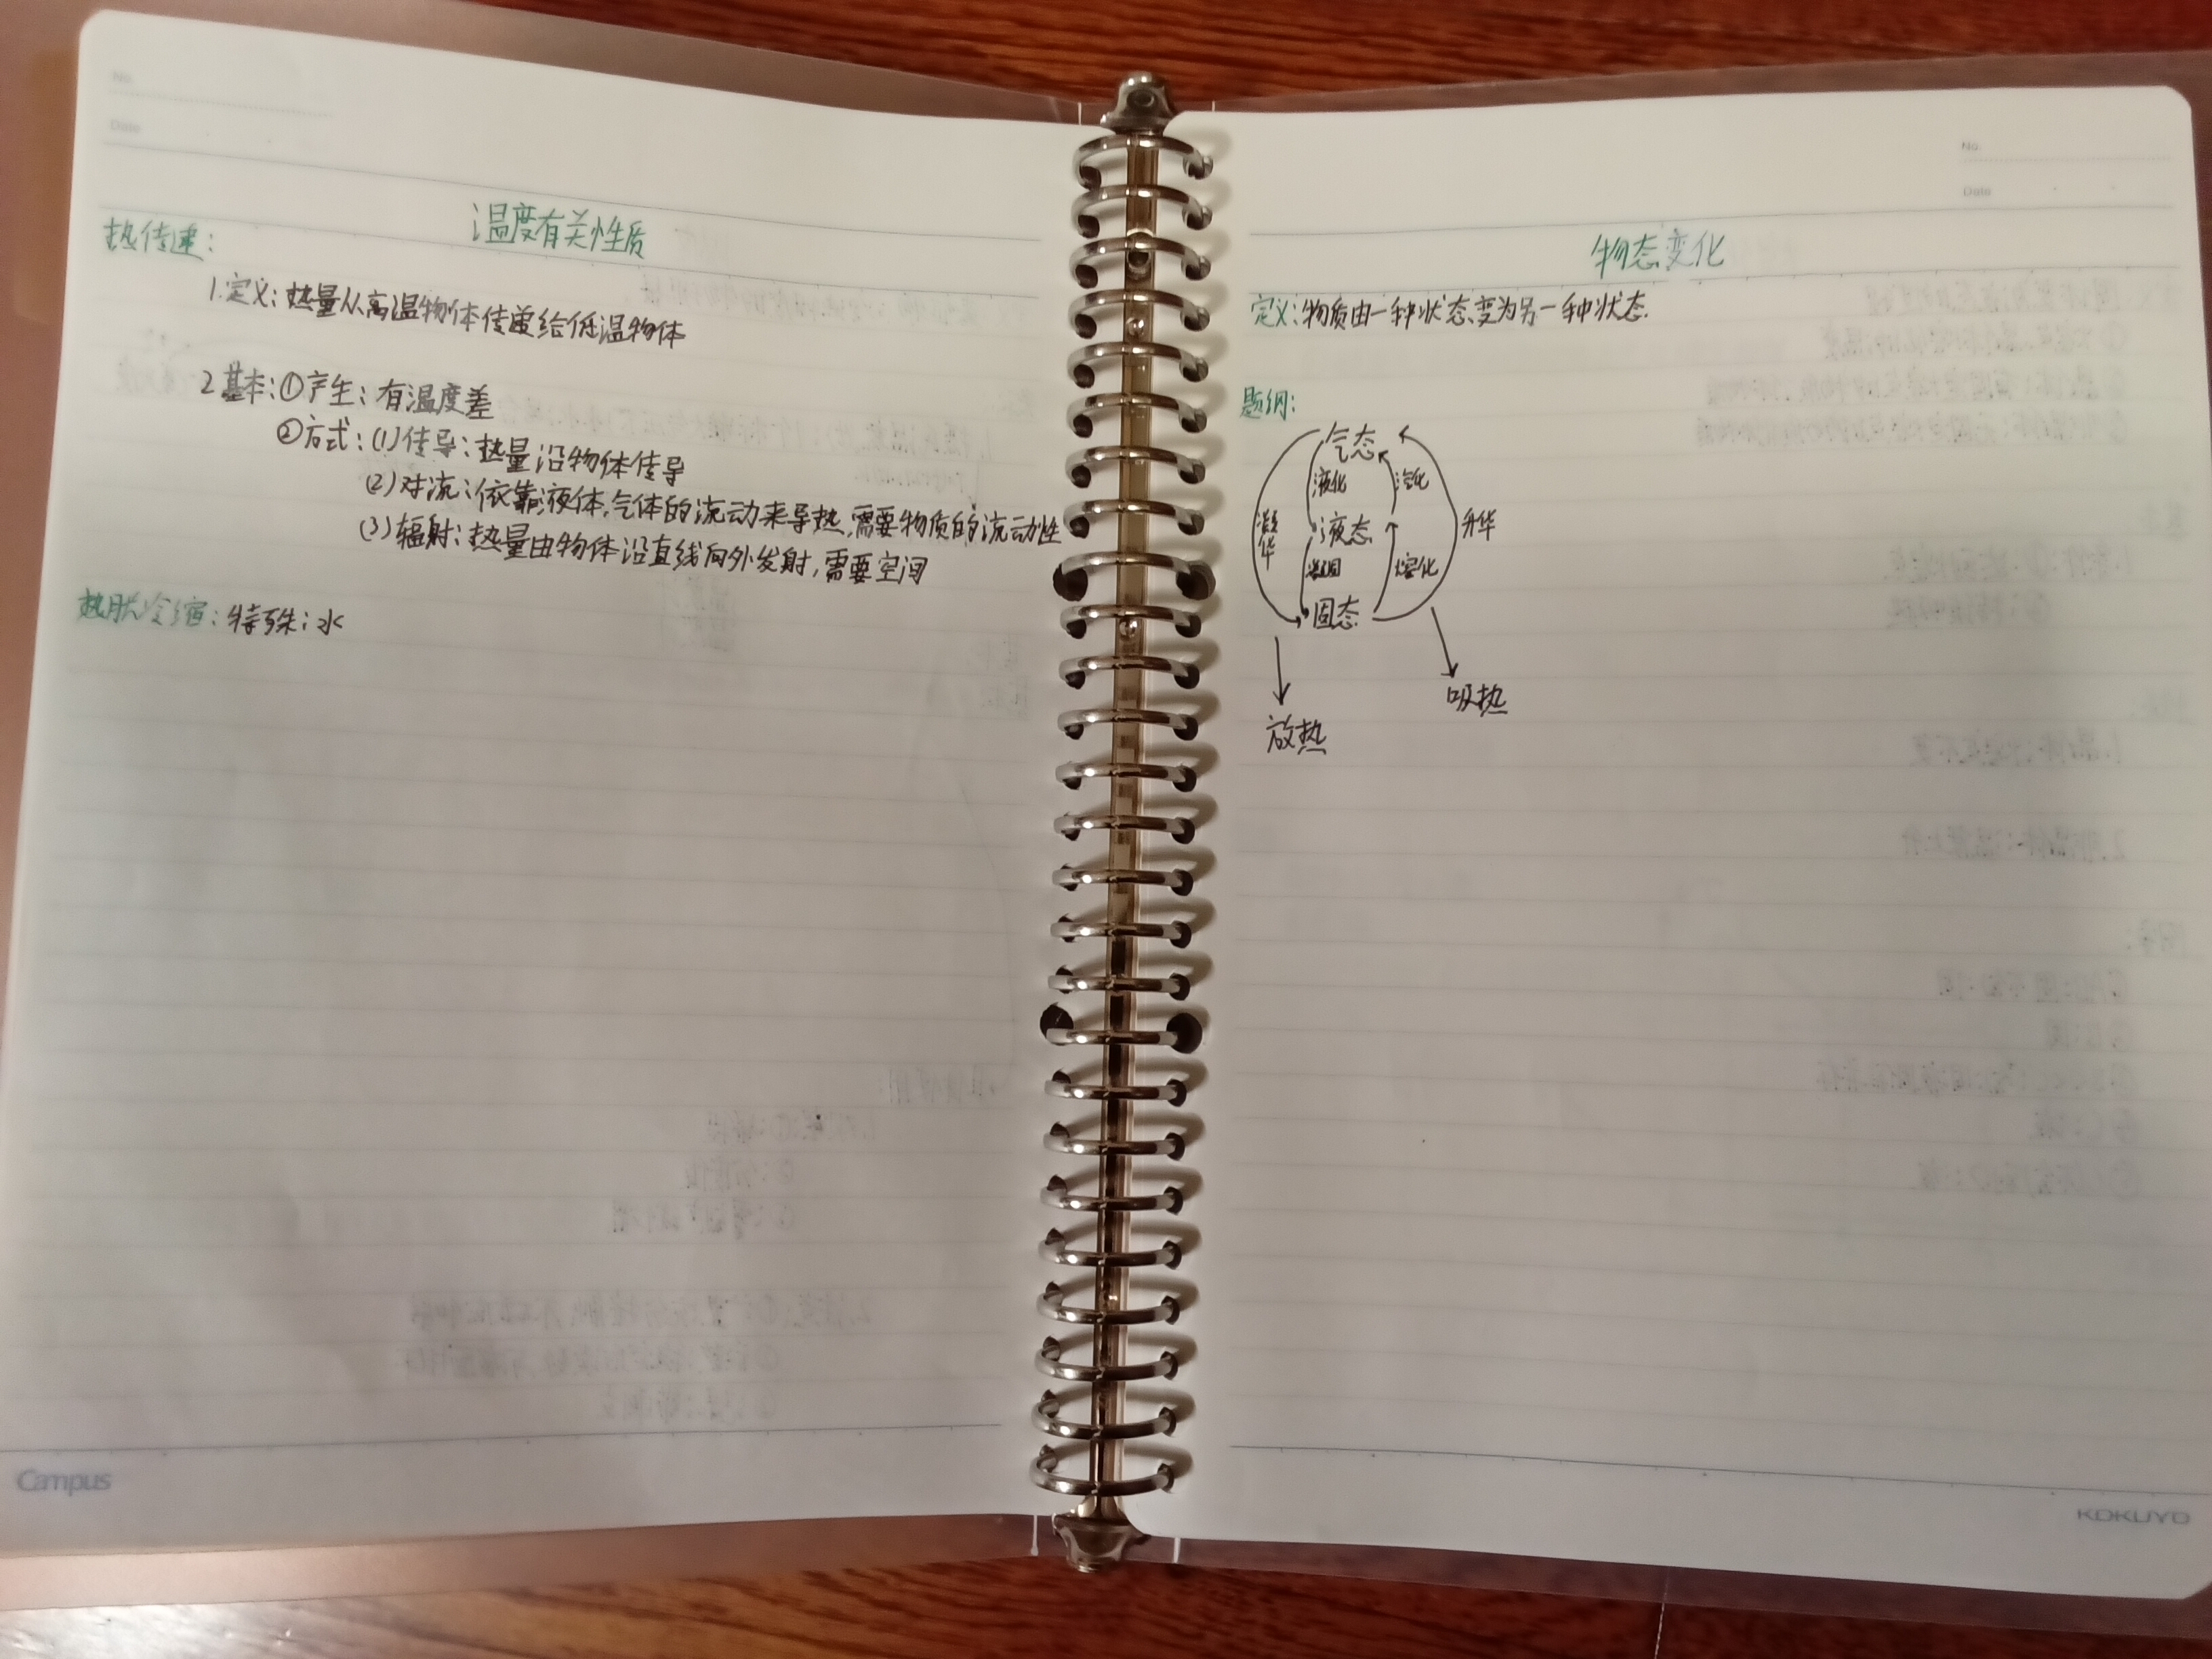 No.
Date
温度有关性质
热传递:
1.定义:热量从高温物体传递给低温物体
2基本:①产生:有温度差
②方式:(1)传导:热量沿物体传导
(2)对流:依靠液体,气体的流动来导热,需要物质的流动性
(3)辐射:热量由物体沿直线向外发射,需要空间
热胀冷缩:特殊:水
Campus
No.
Date
物态变化
定义:物质由一种状态变为另一种状态.
题纲:
气态
液化 汽化
凝华 液态 升华
凝固 熔化
固态
吸热
放热
KOKUYO